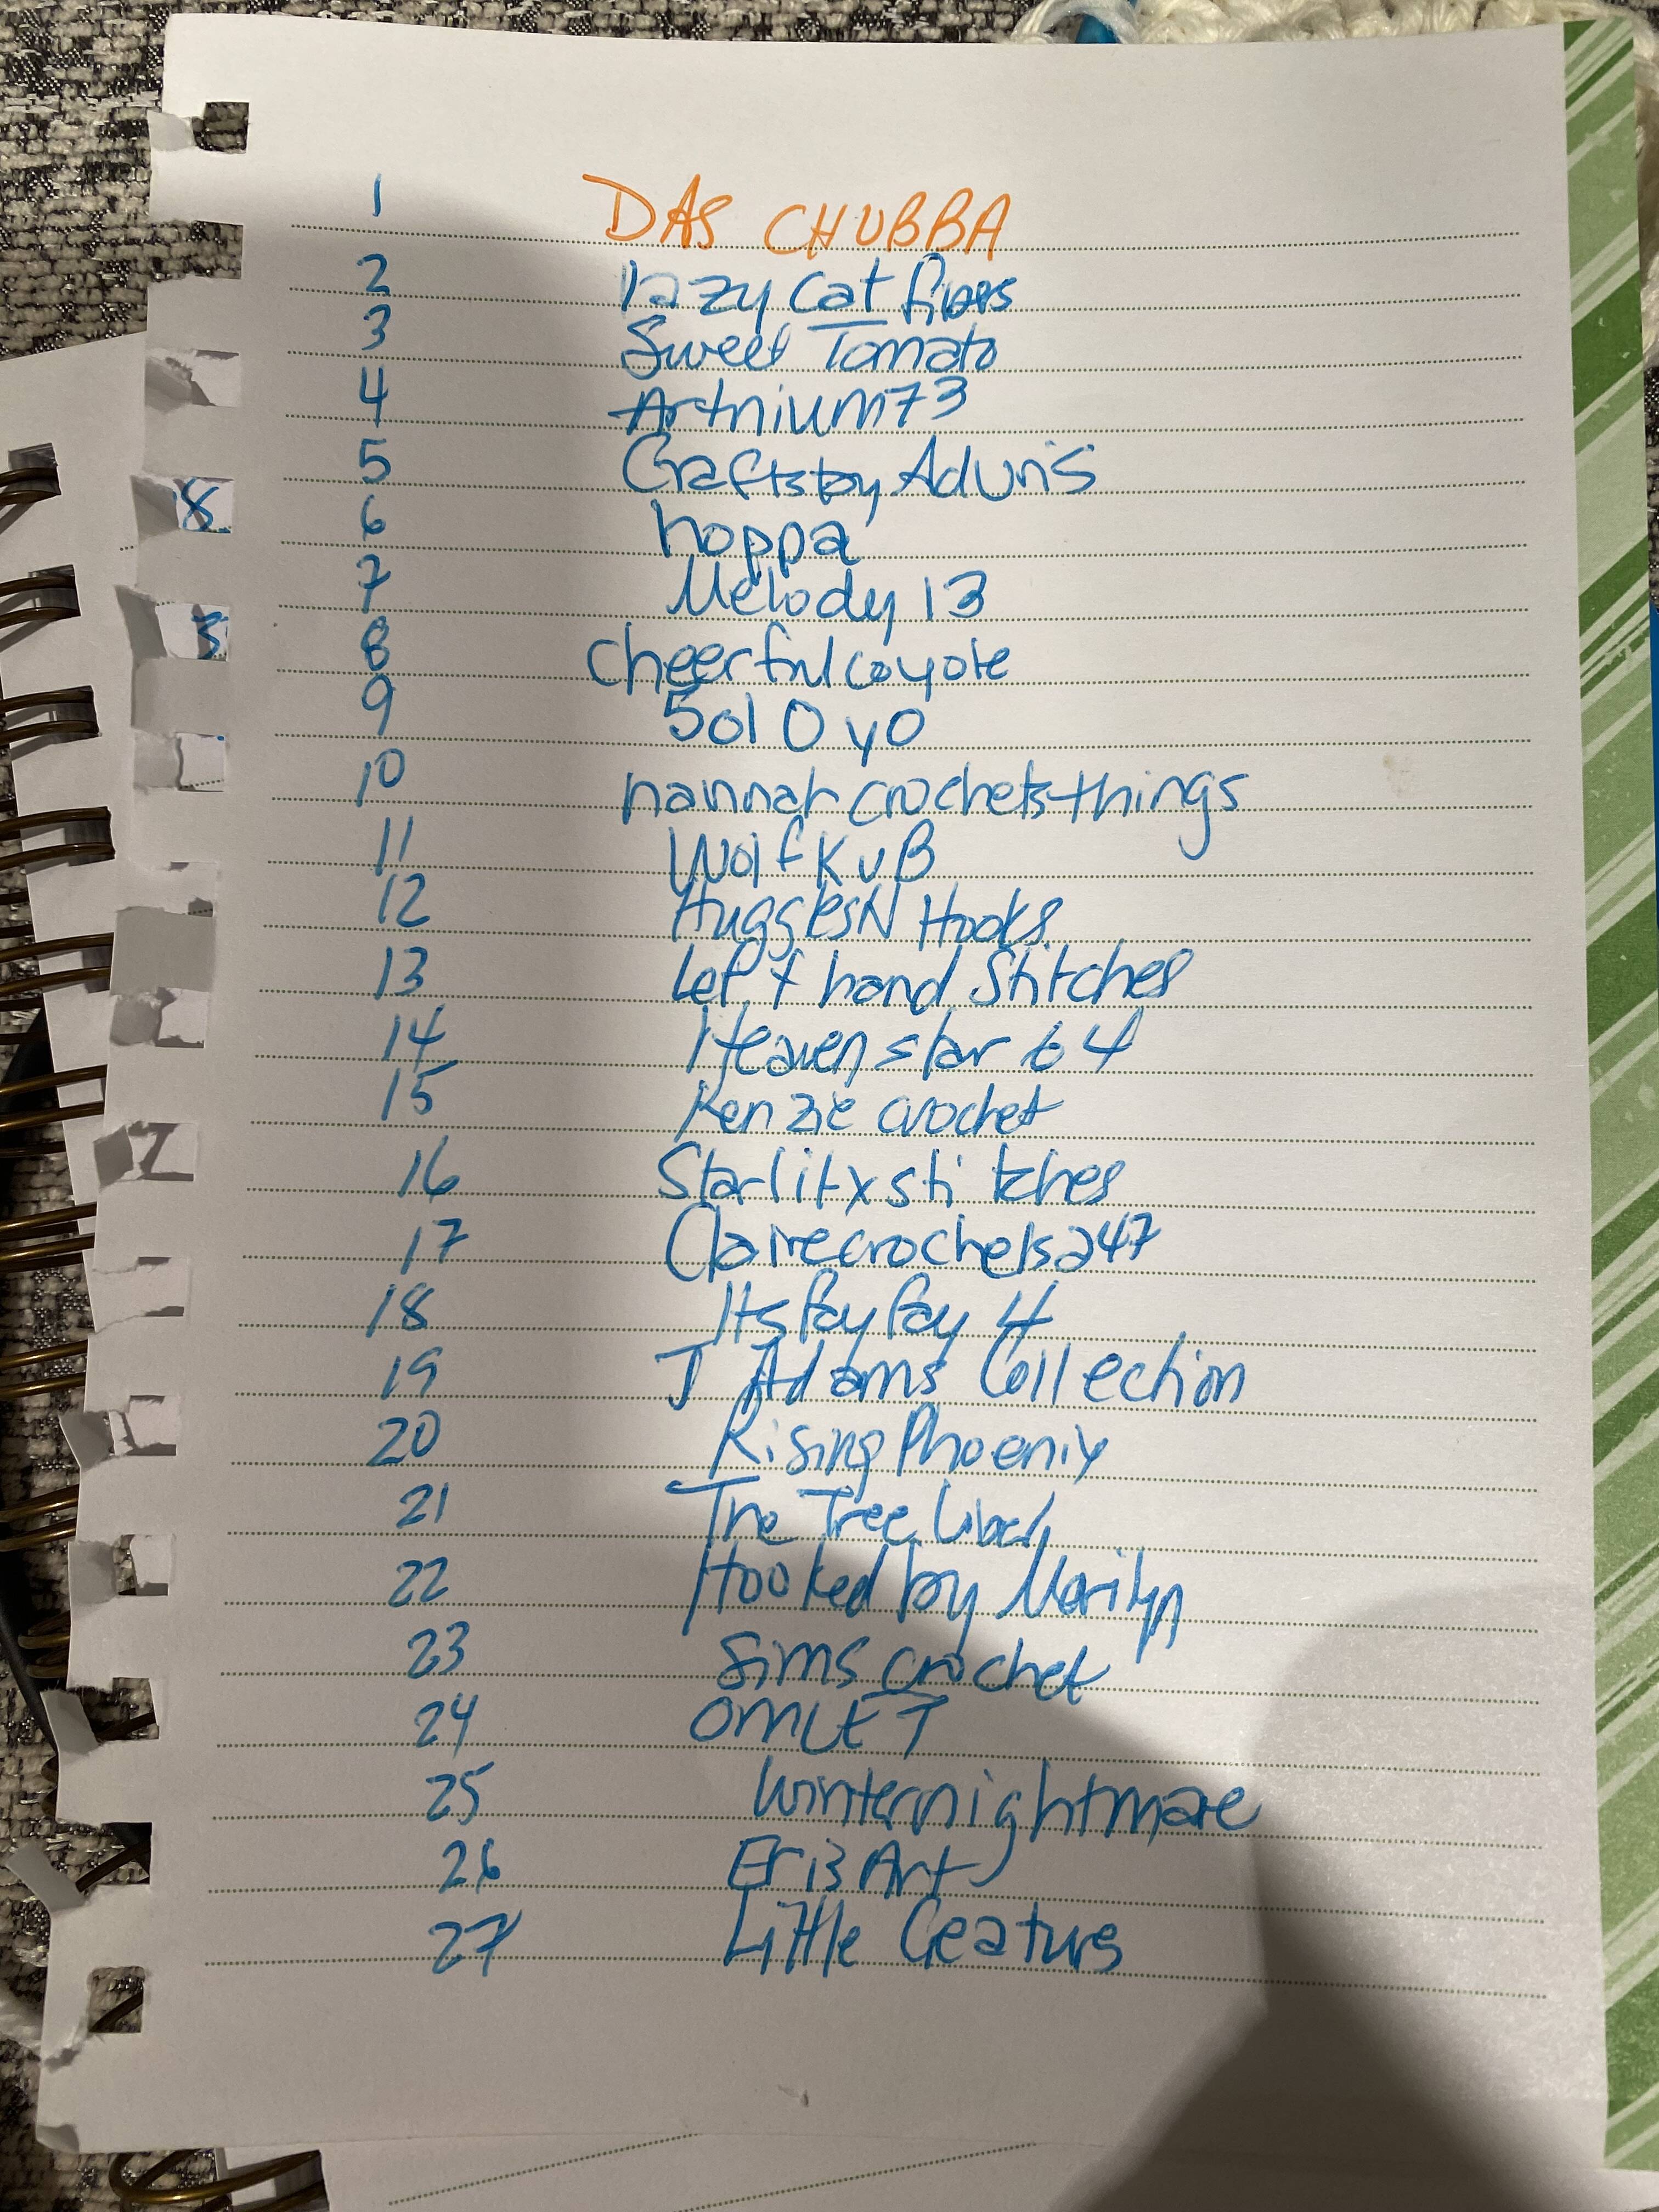 1 DAS CHUBBA
2 lazy cat fibers
3 Sweet Tomato
4 Artnium73
5 Craftsby Aduris
6 hoppa
7 Melody 13
8 cheerfulcoyote
9 Sol O yO
10 hannah crochetsthings
11 WolfKuB
12 HugglesN Hooks
13 Left hand Stitches
14 Heaven star 64
15 Kenzie crochet
16 Starlitxstitches
17 Clairecrochets247
18 Its fay fay 4
19 J Adams Collection
20 Rising Phoenix
21 The Tree
22 Hooked by Marilyn
23 Sims crochet
24 OMLET
25 Winternightmare
26 Eris Art
27 Little Ceaturs
8
5